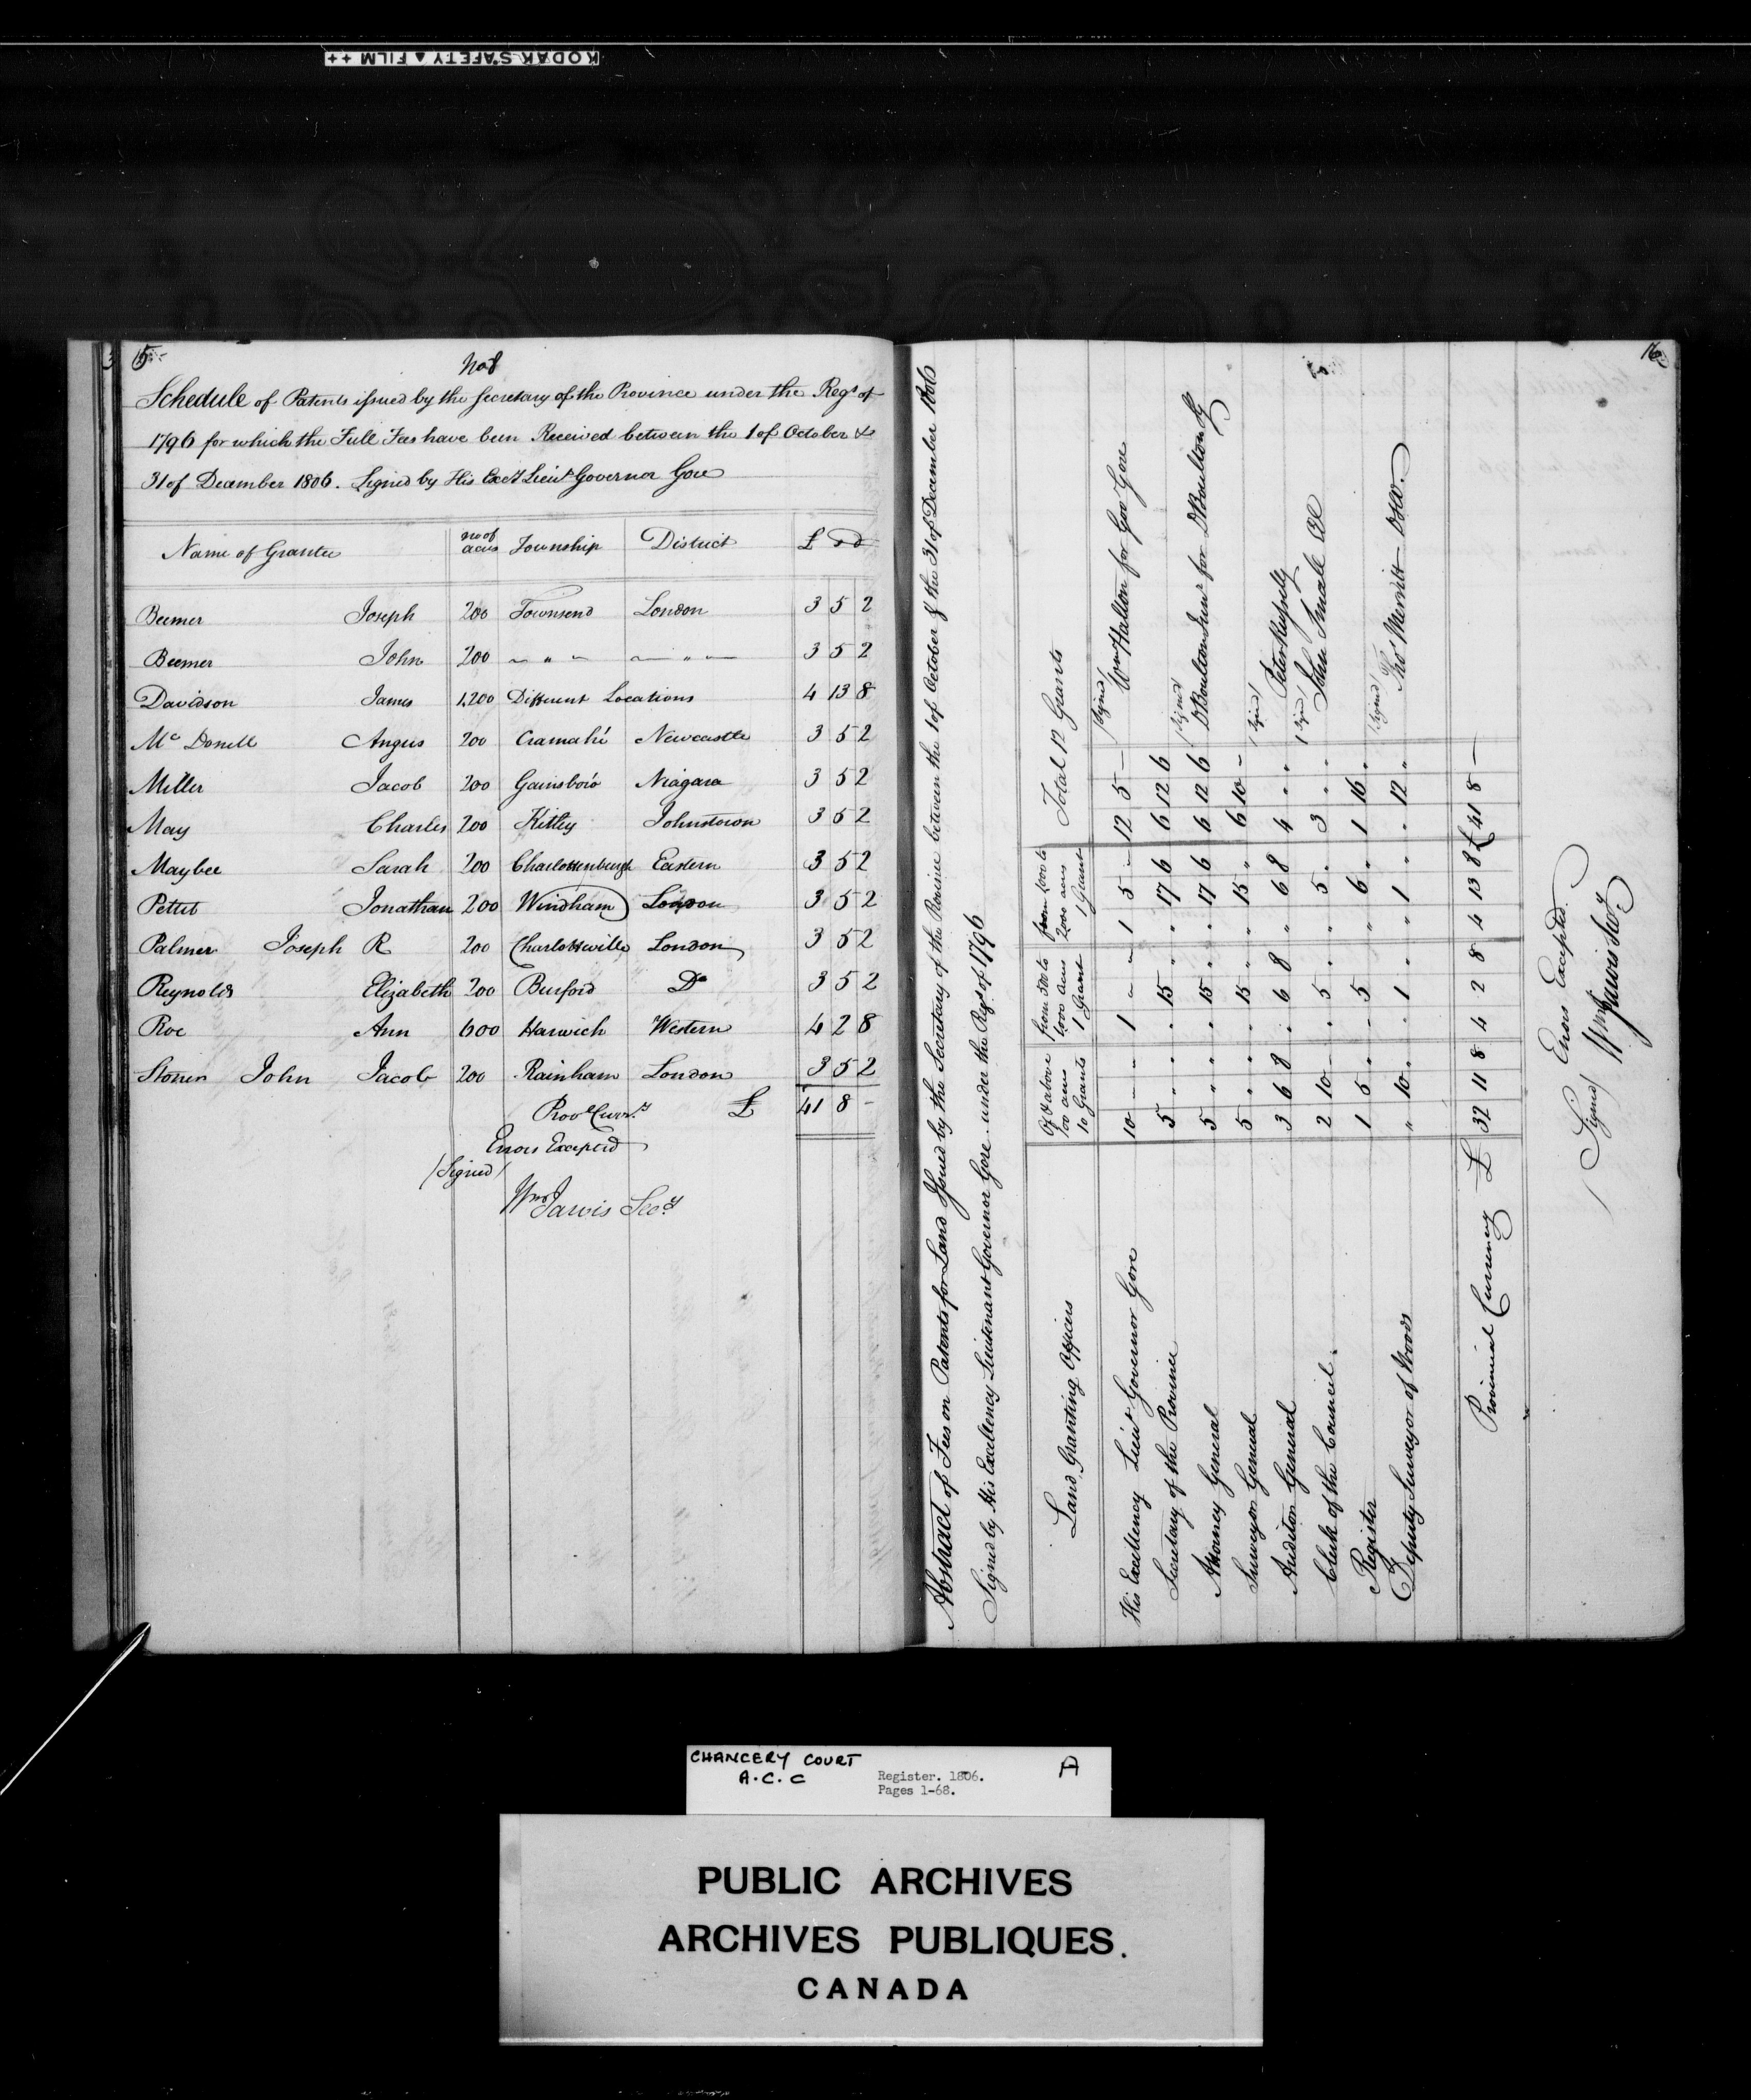 KODAK SAFETY ▲ FILM ++
15
No 8
Schedule of Patents issued by the Secretary of the Province under the Regs of
1796 for which the Full Fees have been Received between the 1 of October &
31 of December 1806. Signed by His Excy Lieut Governor Gore
Name of Grantee no of acres Township District £ s d
Beemer Joseph 200 Townsend London 3 5 2
Beemer John 200 — " — — " — 3 5 2
Davidson James 1,200 Different Locations 4 13 8
Mc Donell Angus 200 Cramahé Newcastle 3 5 2
Miller Jacob 200 Gainsboro Niagara 3 5 2
May Charles 200 Kitley Johnstown 3 5 2
Maybee Sarah 200 Charlottenburgh Eastern 3 5 2
Pettit Jonathan 200 Windham London 3 5 2
Palmer Joseph R 200 Charlotteville London 3 5 2
Reynolds Elizabeth 200 Burford Do 3 5 2
Roe Ann 600 Harwich Western 4 2 8
Stoner John Jacob 200 Rainham London 3 5 2
Provl Curry £ 41 8 -
Errors Excepted
(Signed)
Wm Jarvis Secy
16
Abstract of Fees on Patents for Land Issued by the Secretary of the Province between the 1 of October & the 31 of December 1806
Signed by His Excellency Lieutenant Governor Gore under the Regs of 1796
Land Granting Officers Of & above 100 acres 10 Grants from 500 to 1000 acres 1 Grant from 1000 to 2000 acres 1 Grant Total 12 Grants
His Excellency Lieut Governor Gore 10 - - 1 - - 1 5 - 12 5 — (Signed) Wm Halton for Gov Gore
Secretary of the Province 5 " " " 15 " " 17 6 6 12 6
Attorney General 5 " " " 15 " " 17 6 6 12 6 (Signed) D Boulton Junr for D Boulton
Surveyor General 5 " " " 15 " " 15 " 6 10 -
Auditor General 3 6 8 " 6 8 " 6 8 4 " " (Signed) Peter Russell
Clerk of the Council 2 10 - " 5 " " 5 " 3 " " (Signed) John Small
Register 1 5 " " 5 " " 6 " 1 16 "
Deputy Surveyor of Woods " 10 " " 1 " " 1 " " 12 " (Signed) Thos Merritt
Provincial Currency £ 32 11 8 4 2 8 4 13 8 £ 41 8 —
Errors Excepted
(Signed) Wm Jarvis Secy
CHANCERY COURT
A.C.C
Register. 1806.
Pages 1-68.
A
PUBLIC ARCHIVES
ARCHIVES PUBLIQUES.
CANADA